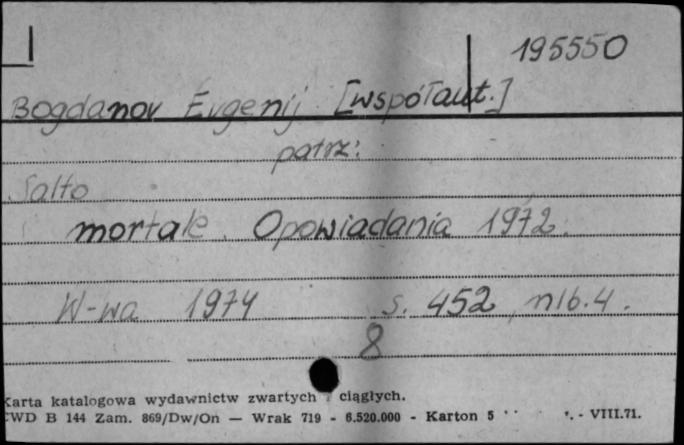 195550
Bogdanov Evgenij [współaut.]
patrz:
Salto
mortale. Opowiadania 1972.
W-wa 1974 s. 452, nlb. 4.
8
Karta katalogowa wydawnictw zwartych i ciągłych.
CWD B 144 Zam. 869/Dw/On — Wrak 719 - 6.520.000 - Karton 5 - VIII.71.